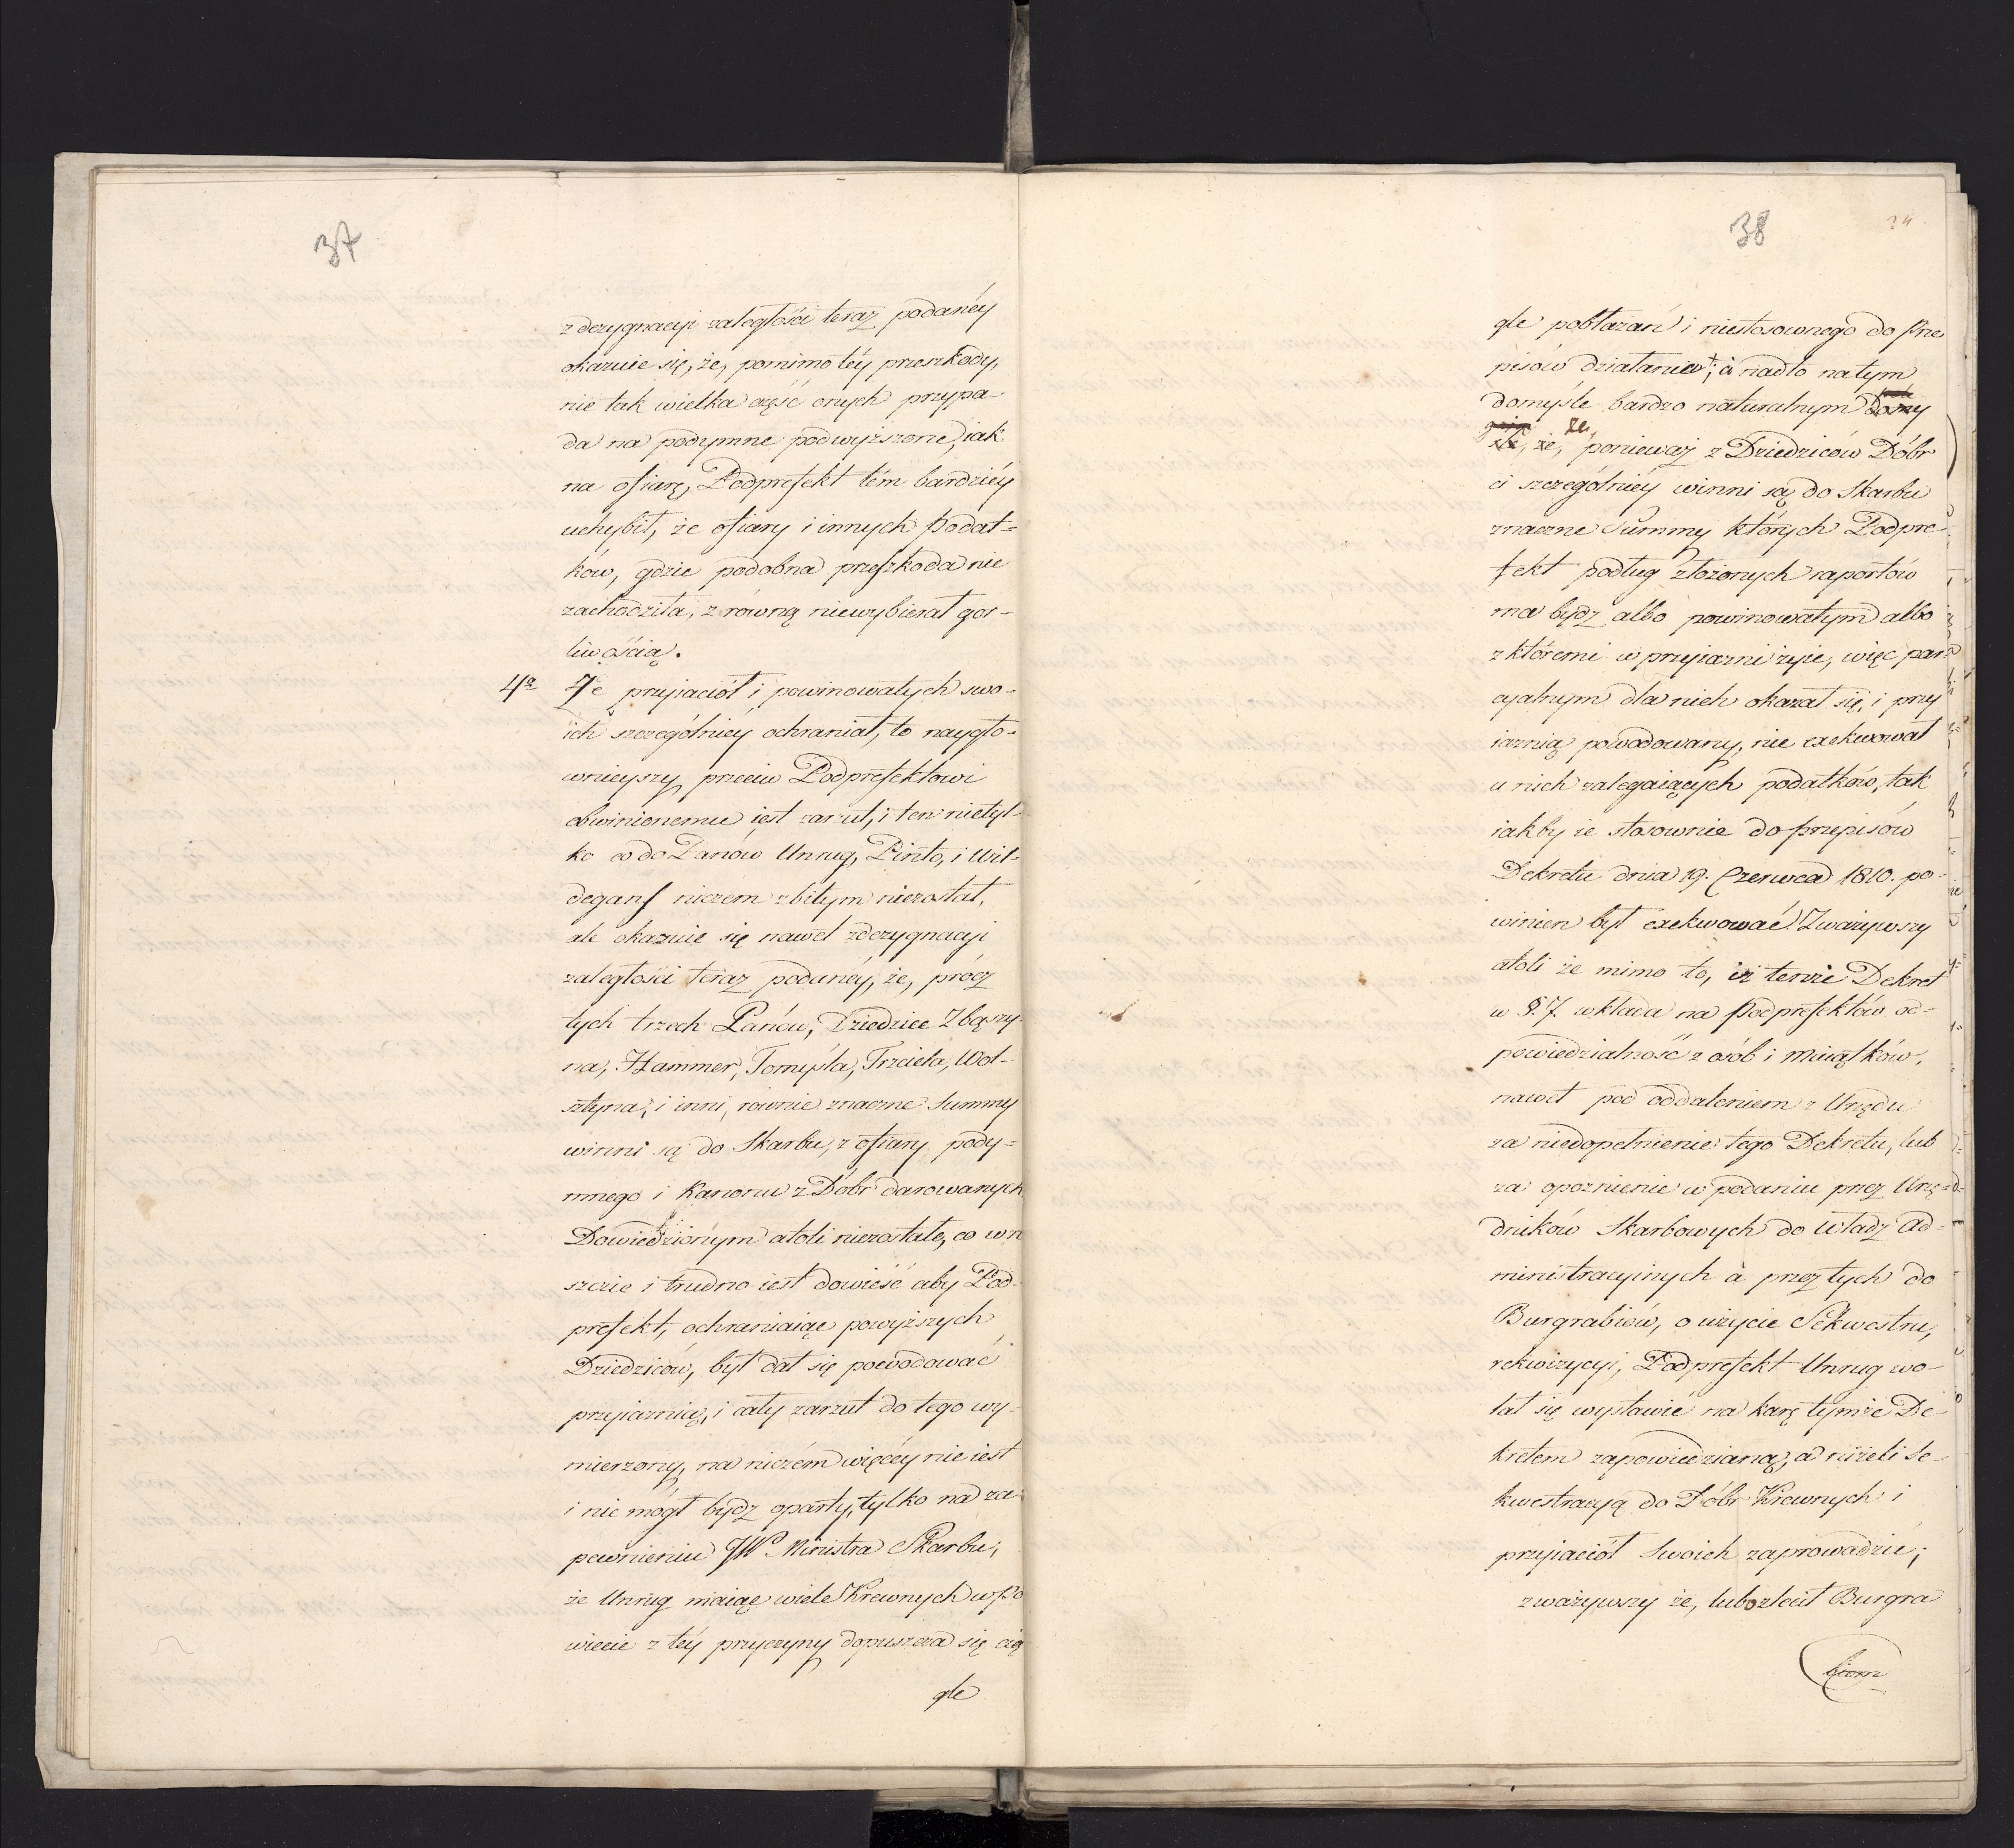 37
z dezygnacyi zaległości teraz podanéy
okazuie się, że, pomimo téy przeszkody,
nie tak wielka część onych przypa-
da na podymne podwyższone, iak
na ofiarę, Podprefekt tém bardziéy
uchybił, że ofiary i innych podat=
ków, gdzie podobna przeszkoda nie
zachodziła, z równą niewybierał gor-
liwością.
4º Że przyiaciół i powinowatych swo-
ich szczególniéy ochraniał, to naygło-
wnieyszy przeciw Podprefektowi
obwinionemu iest zarzut, i ten nietyl-
ko co do Panów Unrug, Pinto, i Wil-
degans niczém zbitym niezostał,
ale okazuie się nawet z dezygnacyi
zaległości teraz podanéy, że, prócz
tych trzech Panów, Dziedzice Zbąszy-
na, Hammer, Tomyśla, Trzciela, Wol-
sztyna, i inni, równie znaczne Summy
winni są do Skarbu, z ofiary, pody=
mnego i Kanonu z Dóbr darowanych
Dowiedzionym atoli niezostało, co wre
szcie i trudno iest dowieść aby Pod-
prefekt, ochraniaiąc powyższych
Dziedziców, był dał się powodować
przyiaźnią, i cały zarzut do tego wy-
mierzony, na niczém więcéy nie iest
i nie mógł bydź oparty, tylko na za-
pewnieniu JW Ministra Skarbu,
że Unrug maiąc wiele Krewnych w Po
wiecie z téy przyczyny dopuszcza się cią
gle
38
34
gle pobłażań i niestosownego do prze
pisów działania; à nadto na tym
domyśle bardzo naturalnym
że, ponieważ z Dziedziców Dóbr
ci szczególniéy winni są do Skarbu
znaczne Summy których Podpre-
fekt podług złożonych raportów
ma bydź albo powinowatym albo
z któremi w przyiaźni żyie, więc par
cyalnym dla nich okazał się, i przy
iaźnią powodowany, nie exekwował
u nich zalegaiących podatków, tak
iakby ie stosownie do przepisów
Dekretu dnia 19. Czerwca 1810. po-
winien był exekwować. Zważywszy
atoli że mimo to, iż tenże Dekret
w § 7. wkłada na Podprefektów od-
powiedzialność z osób i Maiątków,
nawet pod oddaleniem z Urzędu
za niedopełnienie tego Dekretu, lub
za opoźnienie w podaniu przez Urzę-
dników Skarbowych do Władz Ad-
ministracyinych à przez tych do
Burgrabiów, o użycie Sekwestru,
rekwizycyi, Podprefekt Unrug wo-
łał się wystawić na karę tymże De
kretem zapowiedzianą, a niżeli Se-
kwestracyą do Dóbr Krewnych i
przyiaciół Swoich zaprowadzić;
zważywszy że, lubo zlecił Burgra
biom